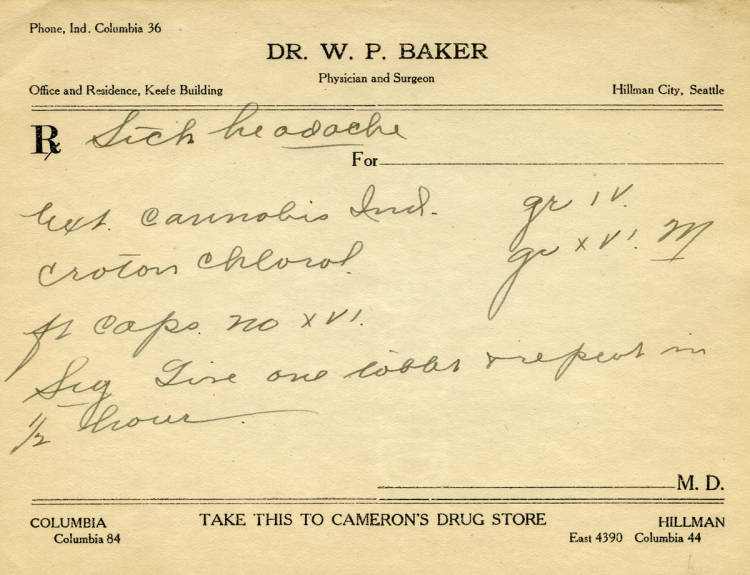 Phone, Ind. Columbia 36
DR. W. P. BAKER
Physician and Surgeon
Office and Residence, Keefe Building Hillman City, Seattle
℞ Sick headache
For
Ext. Cannabis Ind. gr IV.
Croton Chloral. gr XVI. M
ft Caps. no XVI.
Sig Give one & repeat in
1/2 hour
M. D.
COLUMBIA TAKE THIS TO CAMERON'S DRUG STORE HILLMAN
Columbia 84 East 4390 Columbia 44